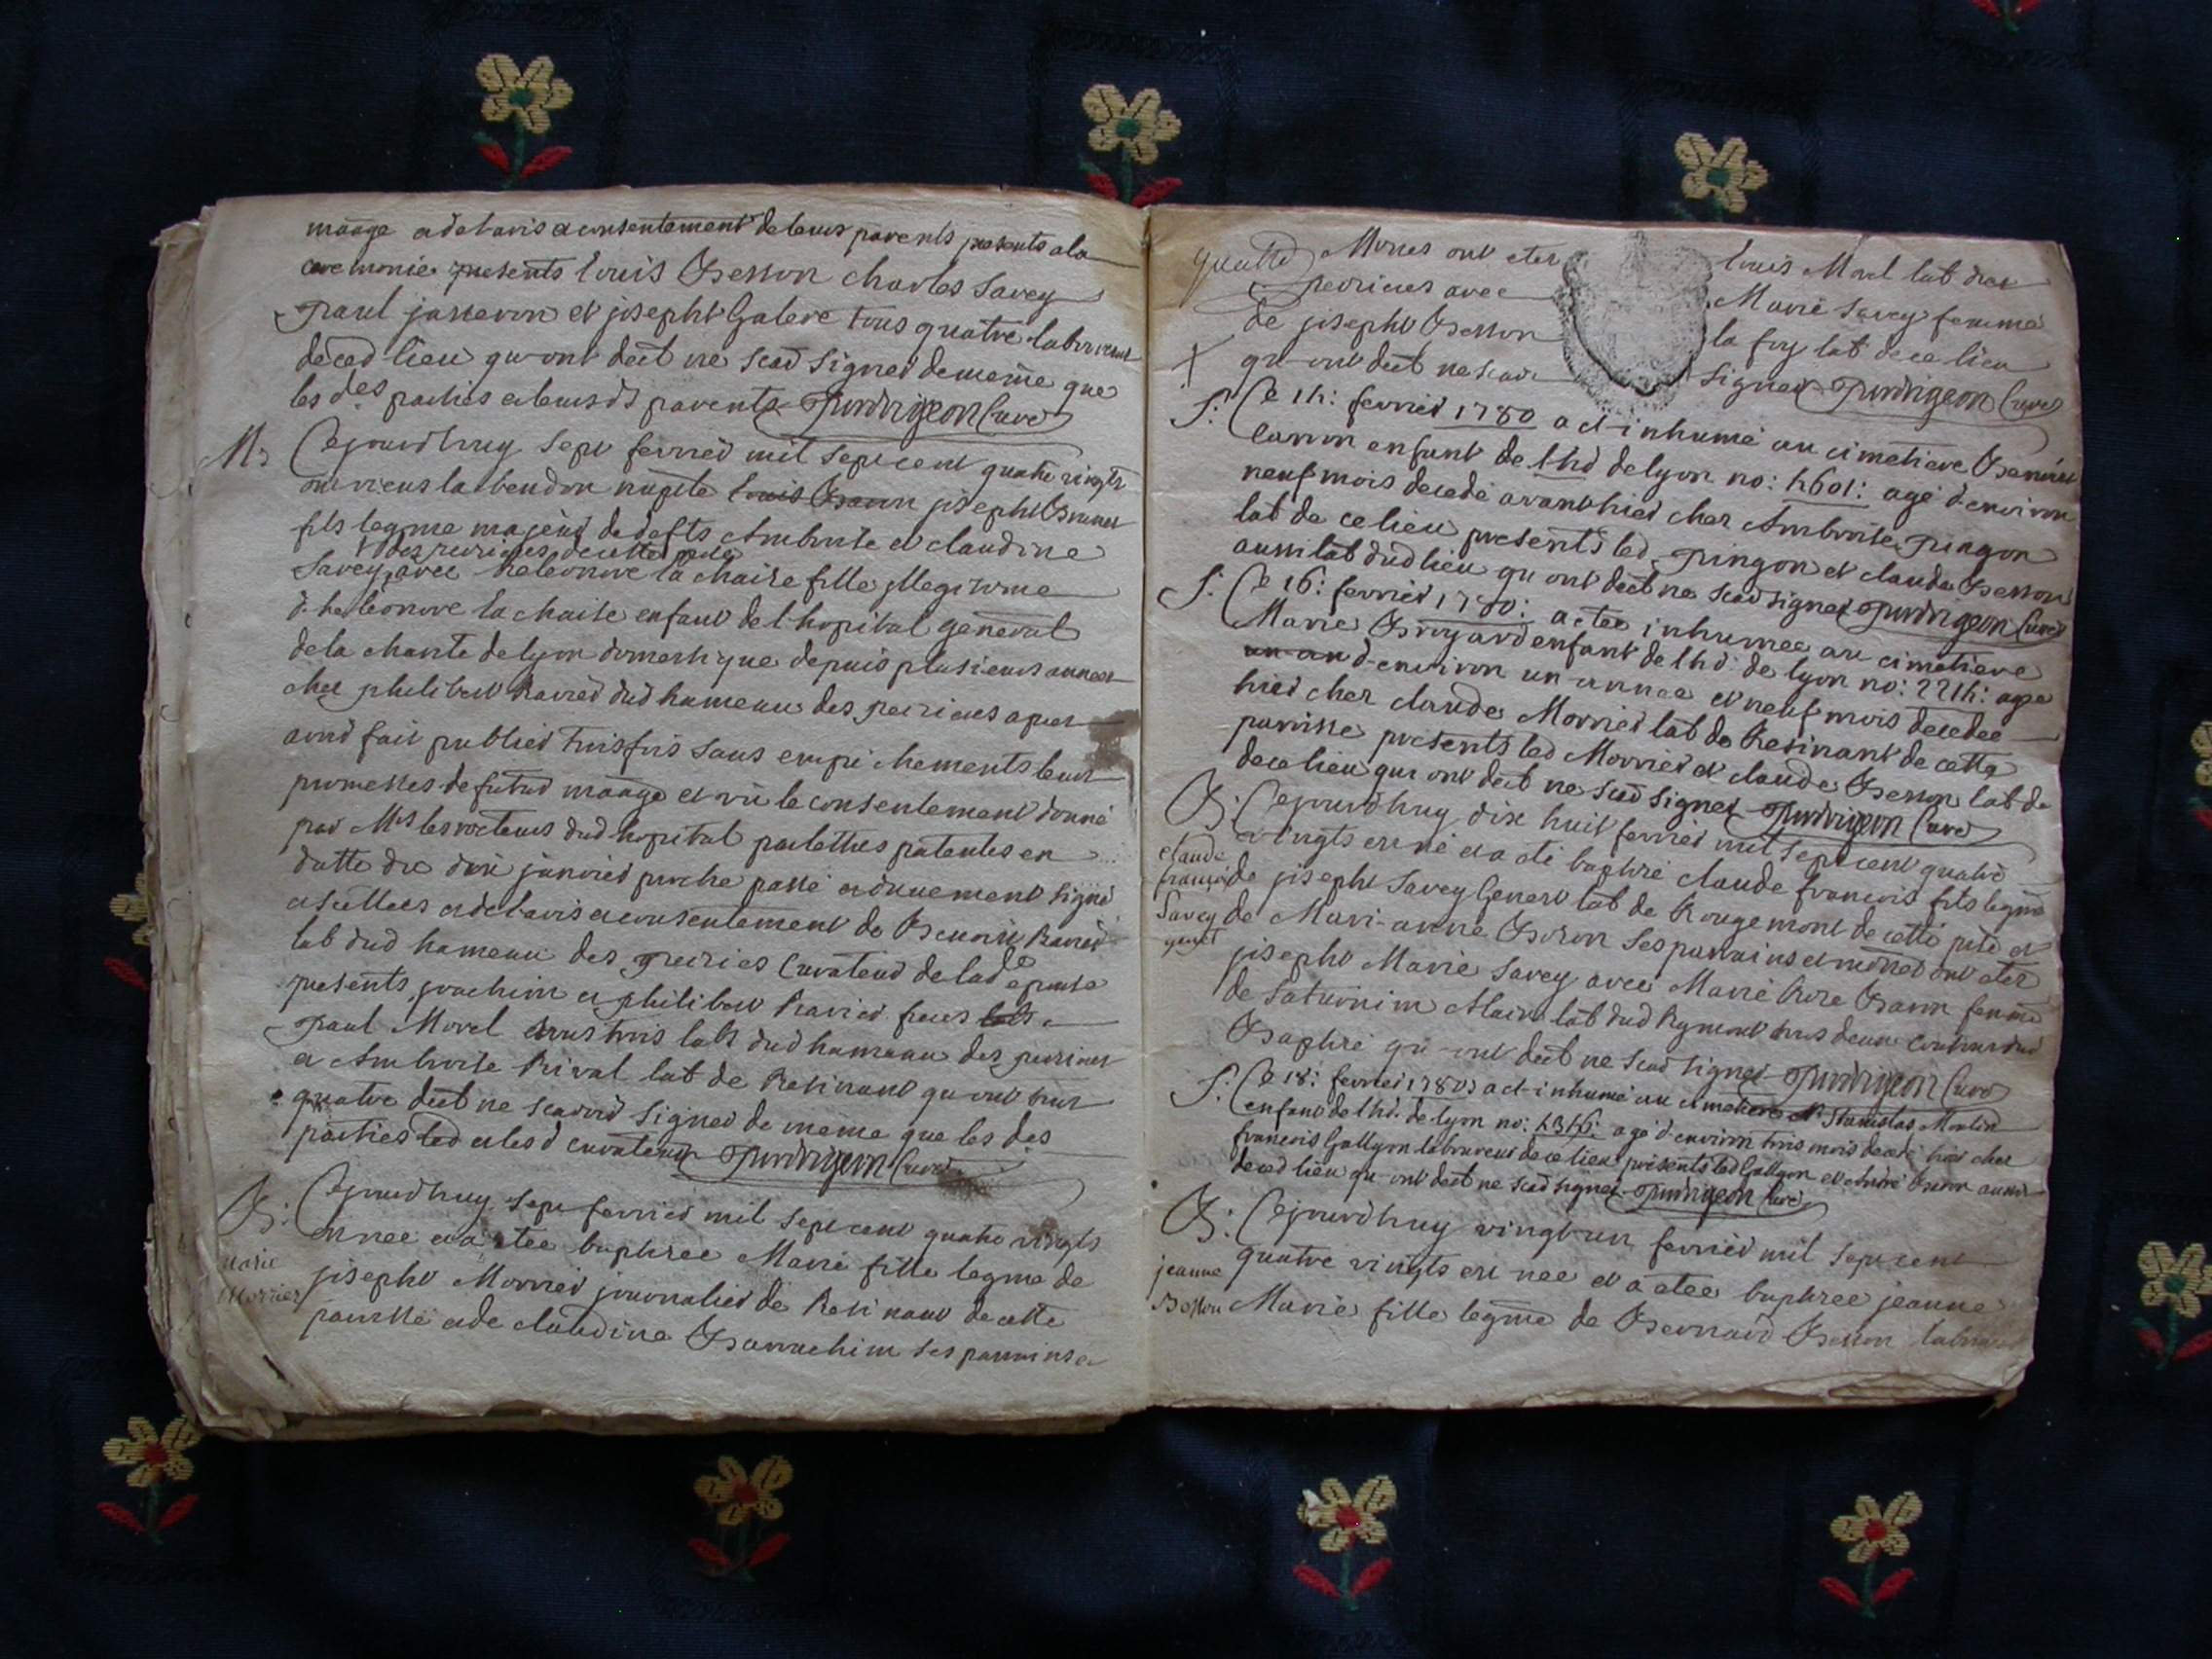 mäage et de l'avis et consentement de leurs parents presents a la
ceremonie presents louis Besson charles Savey
paul jasseron et josepht Galere tous quatre laboureurs
deced lieu qu-ont dect ne scad signer dememe que
les des parties et leurs ds parents (curé)
M: Cejourd'huy sept fevrier mil sept cent quatre vingts
ont receus la benedon nupte josepht
fils legme majeur de defts Ambroise et claudine
des perieres de cette psse
Savey avec heleonore la chaise fille illegitime
d. heleonore la chaise enfant de l'hopital general
de la charite de lyon domestique depuis plusieurs annees
chez philibert Ravier dud hameau des perieres apres
avoir fait publier trois fois sans empechements leurs
promesses de futur mäage et vu le consentement donné
par Mrs les recteurs dud hopital par lettres patentes en
datte du janvier proche passé et duement signé
et scellees et de l'avis et consentement de Benoit Ravier
lab dud hameau des perieres Curateur de lad epouse
presents joachim et philibert Ravier freres
paul Morel tous trois labs dud hameau des perieres
et Ambroise Rival lab de Resinant qu-ont tous
quatre dect ne scavoir signer de meme que les des
parties led et les d curateur (curé)
B: Cejourd'huy sept fevrier mil sept cent quatre vingts
est nee et a etee baptisee Marie fille legme de
Marie
Morrier
josepht Morrier journalier de Resinant de cette
paroisse et de claudine Barrachim ses parrains et
quatte Mores ont eter louis Morel lab des
perieres avec Marie Savey femme
de josepht Besson la foy lab de ce lieu
qu-ont dect ne scavoir signer (curé)
S: Ce 14: fevrier 1780 a et-inhumé au cimetiere Benoit
enfant de lhd de lyon no: 4601: agé d'environ
neuf mois decede avant hier chez Ambroise pingon
lab de ce lieu presents led pingon et claude Besson
aussi lab dud lieu qu ont dect ne scad signer (curé)
S: Ce 16: fevrier 1780: a etee inhumee au cimetiere
Marie Broyard enfant de lhd de lyon no: 2214: agee
un an d-environ un-annee et neuf mois decedee
hier chez claude Morrier lab de Resinant de cette
paroisse presents led Morrier et claude Besson lab de
de ce lieu qui ont dect ne scad signer (curé)
B: Cejourd'huy dix huit fevrier mil sept cent quatre
vingts est né et a eté baptisé claude francois fils legme
claude
francois
Savey
genet
de josepht Savey Genest lab de Rougemont de cette psse et
de Mari-anne Boron ses parrains et ont eter
josepht Marie Savey avec Marie Rose Baron femme
de Saturnin Alain lab dud tous deux dud
Baptisé qu-ont dect ne scad signer (curé)
S: Ce 18: fevrier 1780: a et-inhumé au cimetiere Stanislas Moulin
enfant de lhd de lyon no: 4346: agé d'environ trois mois decede hier chez
francois Gallyon laboureur de ce lieu presents led Gallyon et andré aussi
deced lieu qu-ont dect ne scad signer (curé)
B: Cejourd'huy vingt-un fevrier mil sept cent
quatre vingts est nee et a etee baptisee jeanne
jeanne
Besson
Marie fille legme de Bernard Besson